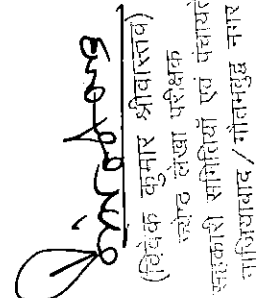 (विवेक कुमार श्रीवास्तव)
ज्येष्ठ लेखा परीक्षक
सहकारी समितियाँ एवं पंचायतें
गाजियाबाद / गौतमबुद्ध नगर